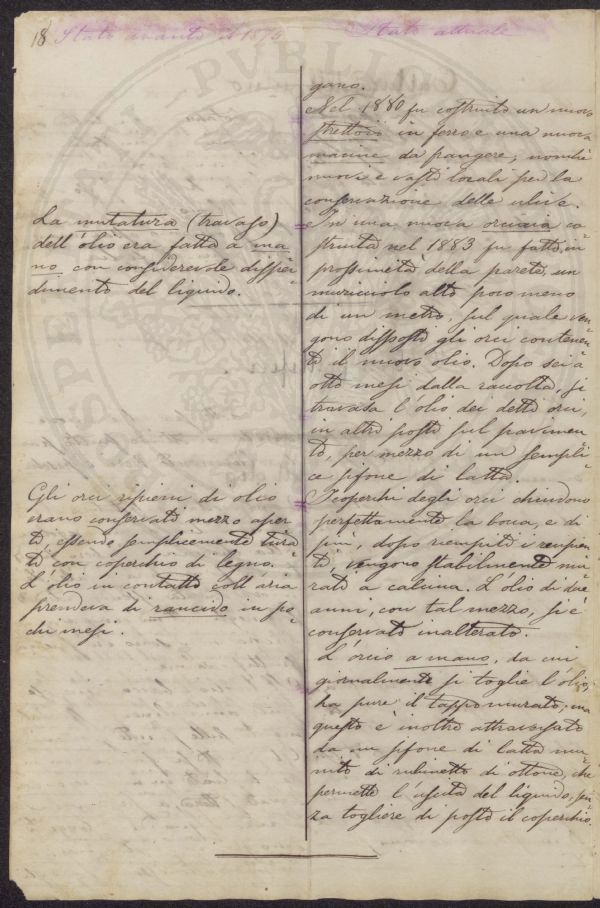 18 Stato avanti il 1874
Stato attuale
La mutatura (travaso)
dell'olio era fatta a ma=
no con considerevole disper=
dimento del liquido.
Gli orci ripieni di olio
erano conservati mezzo aper=
ti, essendo semplicemente turà
ti con coperchio di legno.
L'olio in contatto coll'aria
prendeva di rancido in po=
chi mesi.
gano.
Nel 1880 fu costruito un nuovo
strettoio in ferro e una nuova
macine da frangere, nonchè
nuovi e vasti locali per la
conservazione delle ulive.
In una nuova orciaia co=
struita nel 1883 fu fatto, in
prossimità della parete, un
muricciolo alto poco meno
di un metro, sul quale ven=
gono disposti gli orci contenen=
ti il nuovo olio. Dopo sei a
otto mesi dalla raccolta, si
travasa l'olio dei detti orci,
in altri posti sul pavimen=
to, per mezzo di un sempli=
ce sifone di latta.
I coperchi degli orci chiudono
perfettamente la bocca, e di
più, dopo riempiti i recipien=
ti, vengono stabilmente mu=
rati a calcina. L'olio di due
anni, con tal mezzo, si è
conservato inalterato.
L'orcio a mano, da cui
giornalmente si toglie l'olio,
ha pure il tappo murato; ma
questo è inoltre attraversato
da un sifone di latta mu=
nito di rubinetto di ottone, che
permette l'uscita del liquido, sen=
za togliere di posto il coperchio.